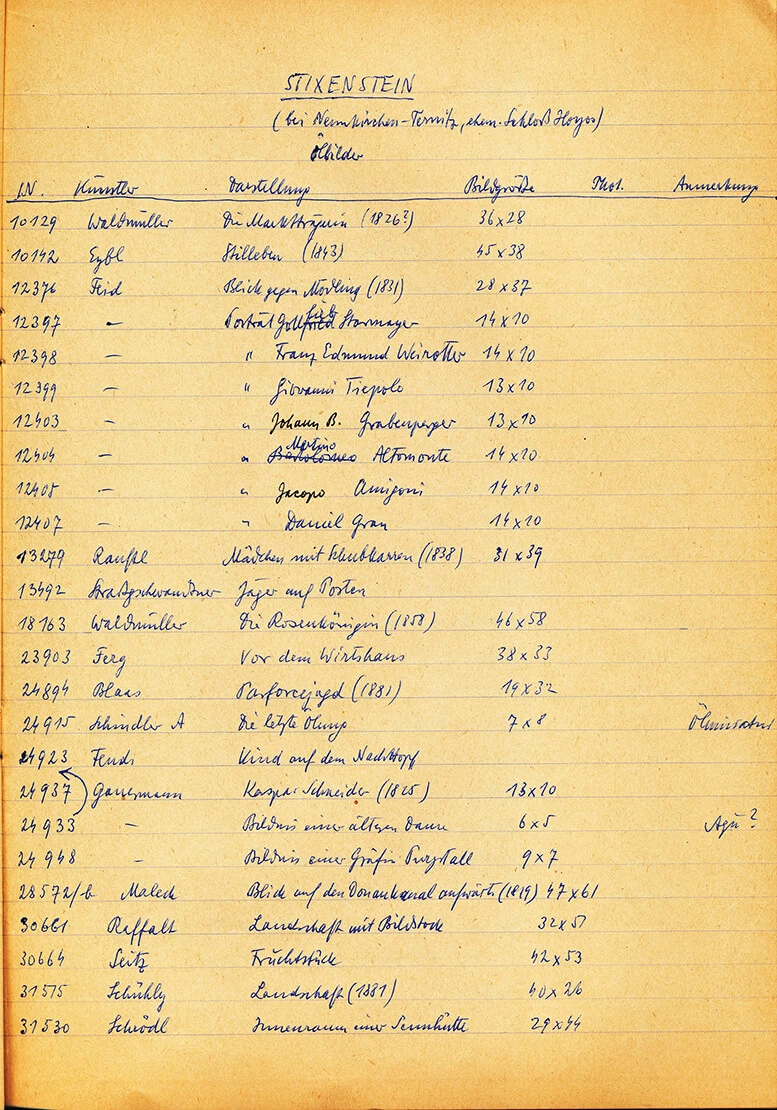 STIXENSTEIN
(bei Neunkirchen-Ternitz, ehem. Schloß Hoyos)
Ölbilder
I.N. Künstler Darstellung Bildgröße Phot. Anmerkung
10129 Waldmüller Die Marktträgerin (1826?) 36x28
10142 Eybl Stilleben (1843) 45x38
12376 Feid Blick gegen Mödling (1831) 28x37
12397 — Porträt Gottfried lieb Starmayer 14x10
12398 — " Franz Edmund Weirotter 14x10
12399 — " Giovanni Tiepolo 13x10
12403 — " Johann B. Grabenperger 13x10
12404 — " Bartolomeo Martino Altomonte 14x10
12405 — " Jacopo Amigoni 14x10
12407 — " Daniel Gran 14x10
13279 Ranftl Mädchen mit Schubkarren (1838) 31x39
13492 Straßgschwandtner Jäger auf Posten
18163 Waldmüller Die Rosenkönigin (1858) 46x58
23903 Ferg Vor dem Wirtshaus 38x33
24894 Blaas Parforcejagd (1881) 19x32
24915 Schindler A Die letzte Ölung 7x8 Ölminiatur
24923 Fendi Kind auf dem Nachttopf
24937 Gauermann Kaspar Schneider (1825) 13x10
24933 — Bildnis einer älteren Dame 6x5 Aqu?
24948 — Bildnis einer Gräfin Purgstall 9x7
28572/b Maleck Blick auf den Donaukanal aufwärts (1819) 47x61
30661 Raffalt Landschaft mit Bildstock 32x51
30664 Seitz Fruchtstück 42x53
31515 Schühly Landschaft (1881) 40x26
31530 Schrödl Innenraum einer Sennhütte 29x44